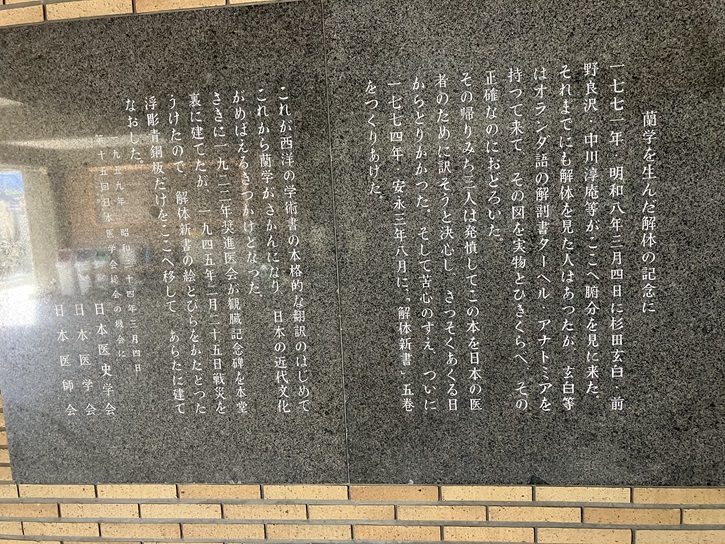 蘭学を生んだ解体の記念に
一七七一年・明和八年三月四日に杉田玄白・前
野良沢・中川淳庵等がここへ腑分を見に来た。
それまでにも解体を見た人はあつたが、玄白等
はオランダ語の解剖書ターヘル・アナトミアを
持つて来て、その図を実物とひきくらべ、その
正確なのにおどろいた。
その帰りみち三人は発憤してこの本を日本の医
者のために訳そうと決心し、さつそくあくる日
からとりかかつた。そして苦心のすえ、ついに
一七七四年・安永三年八月に、「解体新書」五巻
をつくりあげた。
これが西洋の学術書の本格的な翻訳のはじめで
これから蘭学がさかんになり、日本の近代文化
がめばえるきつかけとなつた。
さきに一九二二年奨進医会が観臓記念碑を本堂
裏に建てたが、一九四五年二月二十五日戦災を
うけたので、解体新書の絵とびらをかたどつた
浮彫青銅板だけをここへ移して、あらたに建て
なおした。
一九五九年・昭和三十四年三月四日
第十五回日本医学会総会の機会に
日本医史学会
日本医学会
日本医師会